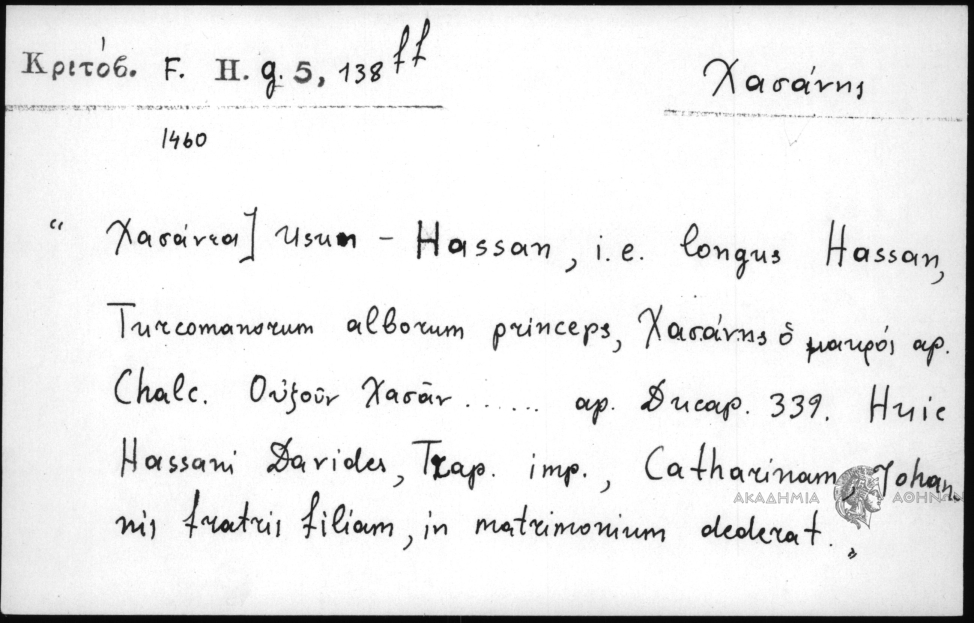 Κριτόβ. F. H. g. 5, 138 ff
Χασάνης
1460
“ Χασάνεα] Usum - Hassan, i.e. longus Hassan,
Turcomanorum alborum princeps, Χασάνης ὁ μακρός ap.
Chalc. Οὐξοῦν Χασᾶν ...... ap. Ducap. 339. Huic
Hassani Davides, Trap. imp., Catharinam, Johan-
nis fratris filiam, in matrimonium dederat.„
ΑΚΑΔΗΜΙΑ ΑΘΗΝΩΝ